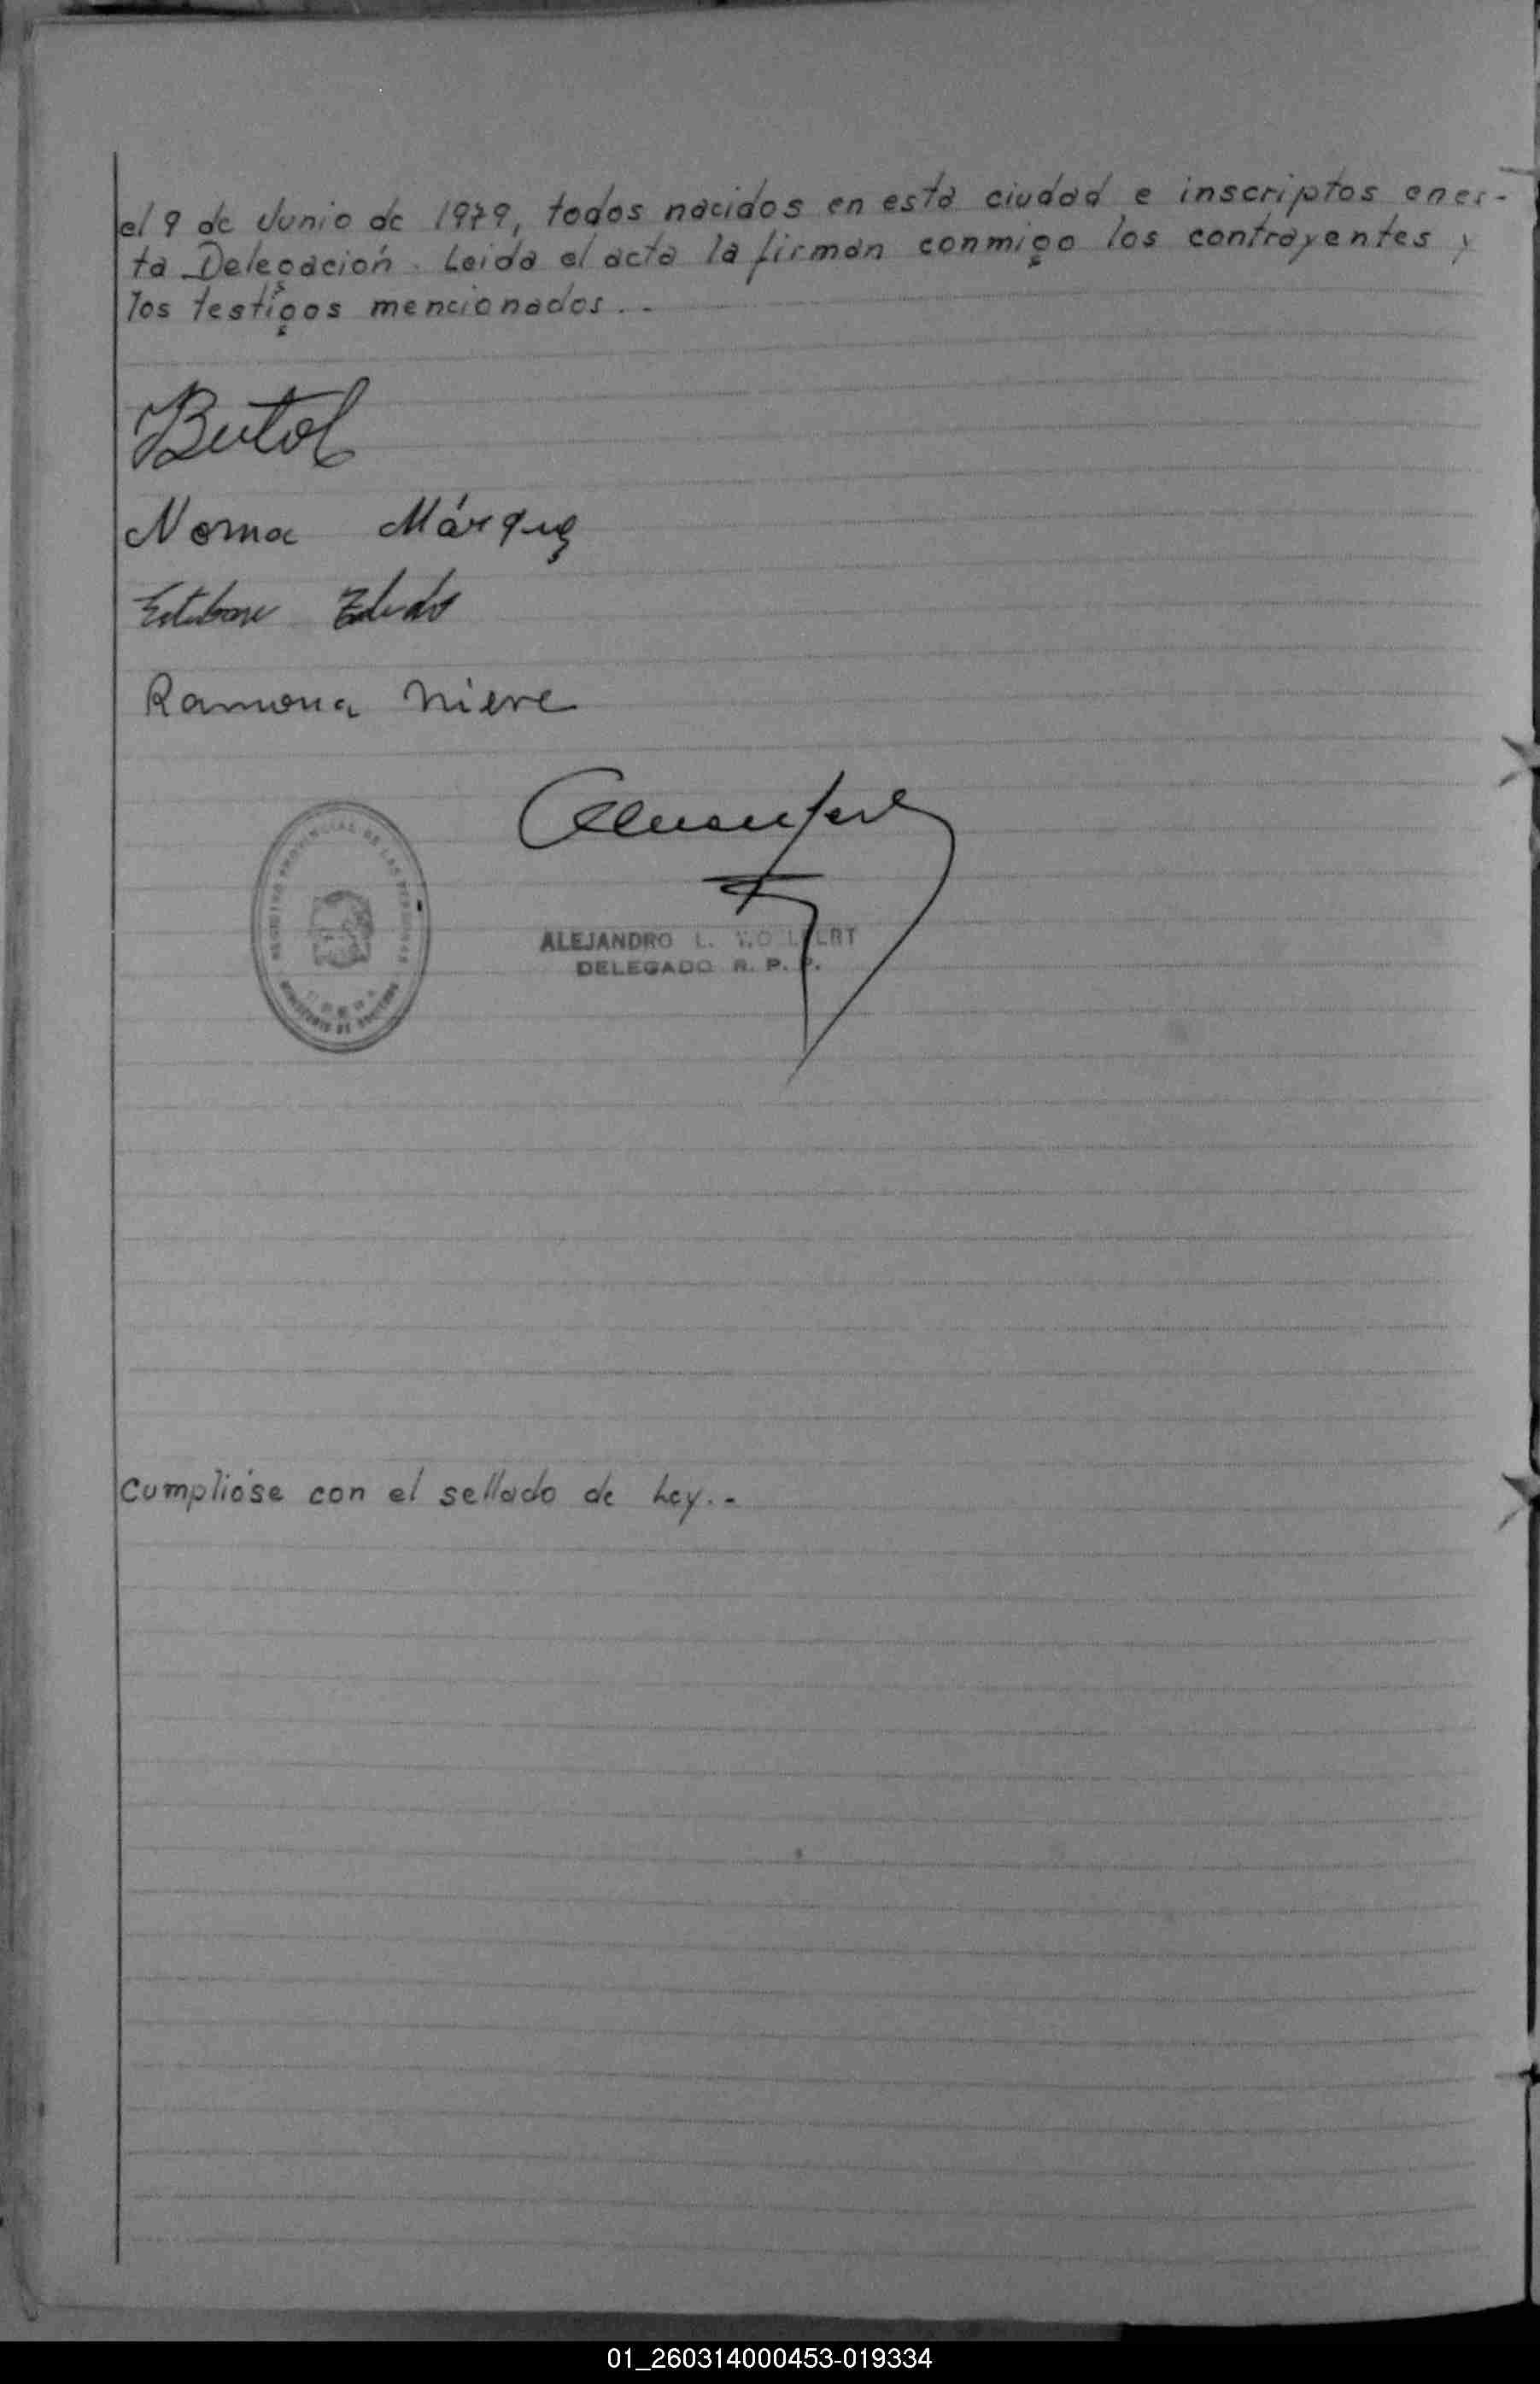 el 9 de Junio de 1979, todos nacidos en esta ciudad e inscriptos en es-
ta Delegación. Leida el acta la firman conmigo los contrayentes y
los testigos mencionados..-
Norma Márquez
Esteban
Ramona Nieve
REGISTRO PROVINCIAL DE LAS PERSONAS
MINISTERIO DE
ALEJANDRO L.
DELEGADO R. P. P.
Cumplióse con el sellado de Ley..-
01_260314000453-019334